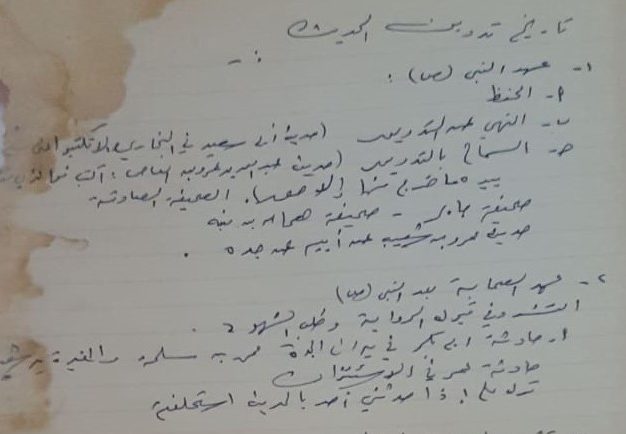 تاريخ تدوين الحديث :-
١- عهد النبي (ص) :
أ- الحفظ
ب- النهي عن التدوين (حديث أبي سعيد في البخاري لا تكتبوا عني
ج- السماح بالتدوين (حديث عبد الله بن عمرو بن العاص : اكتب فوالذي
بيده ما خرج منها إلا حق). الصحيفة الصادقة
صحيفة جابر - صحيفة همام بن منبه
حديث عمرو بن شعيب عن أبيه عن جده .
٢- عهد الصحابة بعد النبي (ص)
التشدد في قبول الرواية وطلب الشهود .
١. حادثة أبي بكر في ميراث الجدة محمد بن مسلمة والمغيرة بن
حادثة عمر في الاستئذان
قول علي إذا حدثني أحد بالحديث استحلفته